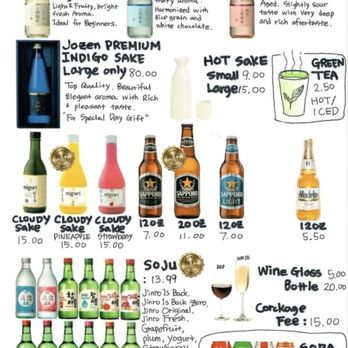 Light & Fruity, bright
fresh Aroma.
Ideal for Beginners.
fruity aroma.
Harmonized with
Rice grain and
white chocolate.
Aged. Slightly sour
taste with Very deep
and rich aftertaste.
Jozen PREMIUM
INDIGO SAKE
Large only 80.00
"Top Quality. Beautiful
Elegant aroma with Rich
& pleasant taste."
"For Special Day Gift"
HOT SAKE
Small 9.00
Large 15.00
GREEN
TEA
2.50
HOT/
ICED
nigori
nigori
nigori
SAPPORO
SAPPORO
SAPPORO
LIGHT
Modelo
CLOUDY
Sake
15.00
CLOUDY
Sake
PINEAPPLE
15.00
CLOUDY
Sake
Strawberry
15.00
12OZ
7.00
20OZ
11.00
12OZ
7.00
12OZ
5.50
SOJU
: 13.99
Jinro Is Back.
Jinro Is Back Zero,
Jinro Original,
Jinro Fresh,
Grapefruit,
plum, Yogurt,
Strawberry
Wine Glass 5.00
Bottle 20.00
Corckage
Fee : 15.00
SODA